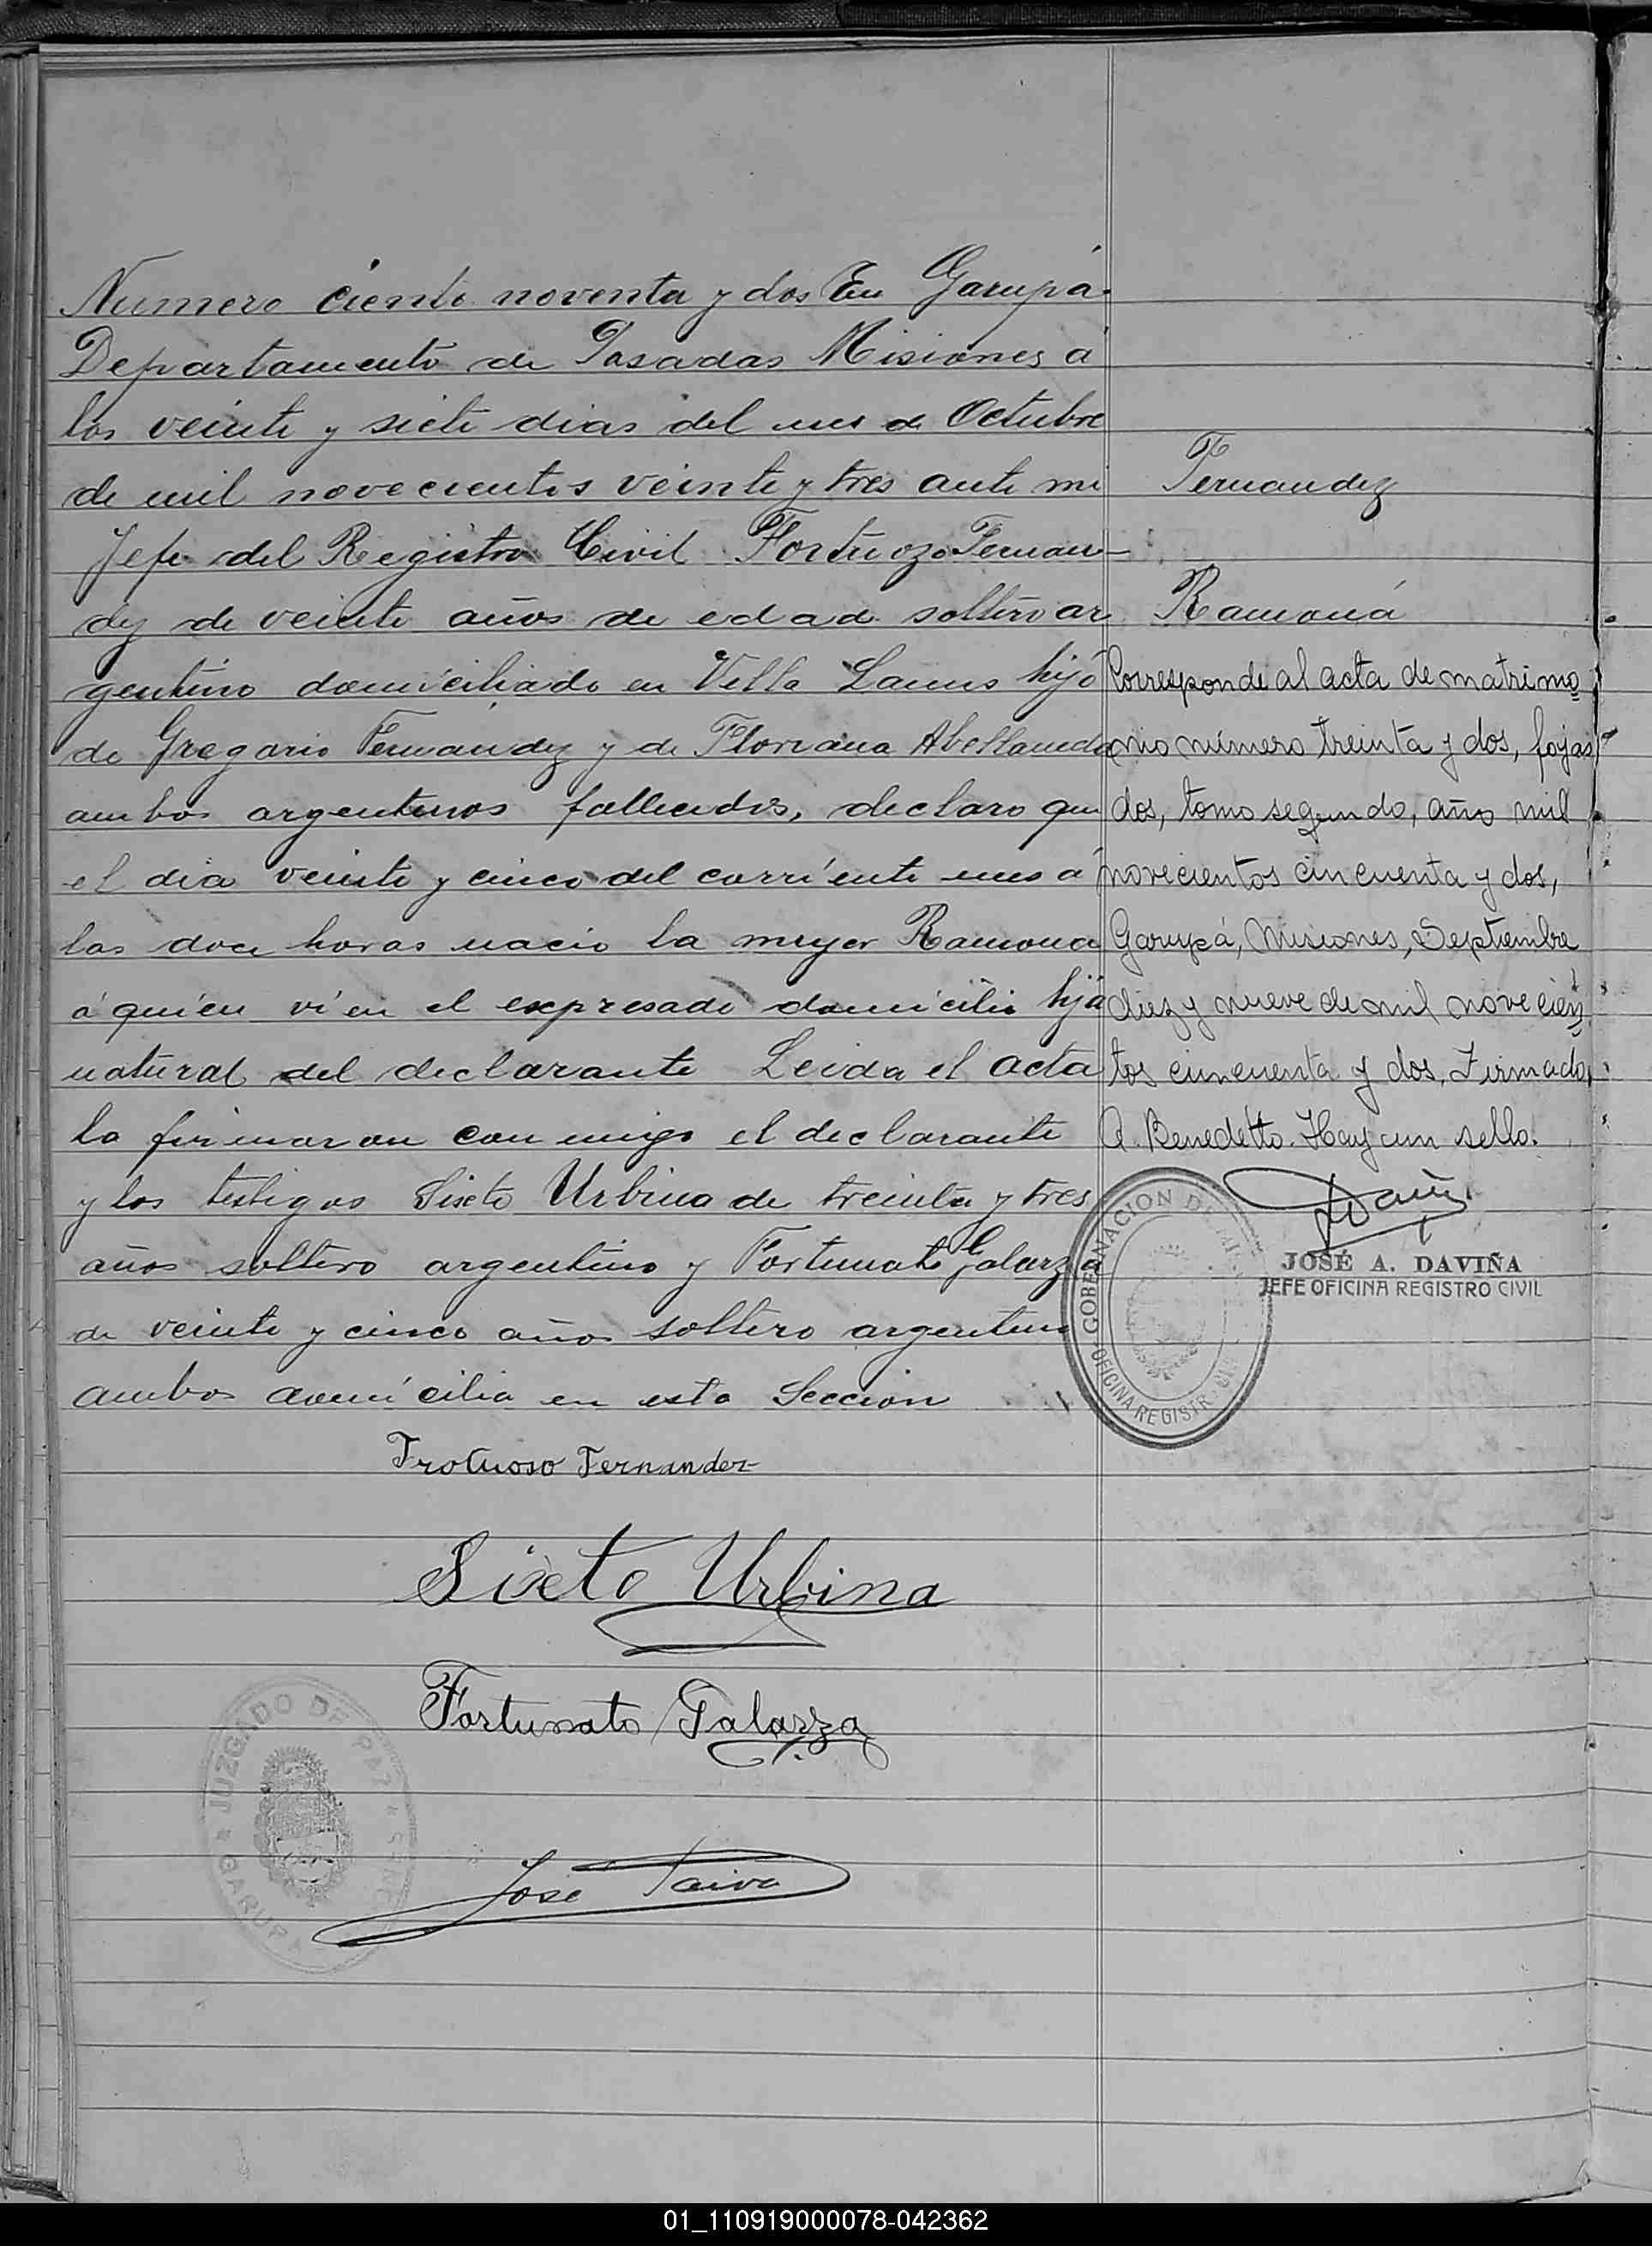 Numero ciento noventa y dos En Garupá
Departamento de Posadas Misiones a
los veinte y siete dias del mes de Octubre
de mil novecientos veinte y tres ante mi
Jefe del Registro Civil Fortuozo Fernan-
dez de veinte años de edad soltero ar
gentino domiciliado en Villa Lanus hijo
de Gregorio Fernandez y de Floriana Abellaneda
ambos argentinos fallecidos, declaro que
el dia veinte y cinco del corriente mes a
las doce horas nacio la mujer Ramona
á quien ví en el expresado domicilio hija
natural del declarante Leida el acta
la firmaron con migo el declarante
y los testigos Sixto Urbina de treinta y tres
años soltero argentino y Fortunato Galarza
de veinte y cinco años soltero argentino
ambos domicilia en esta Seccion
Frotuoso Fernandez
Sixto Urbina
Fortunato Galarza
José Paiva
JUZGADO DE PAZ
GARUPA
Fernandez
Ramona
Corresponde al acta de matrimo
nio número treinta y dos, fojas
dos, tomo segundo, año mil
novecientos cincuenta y dos,
Garupá, Misiones, Septiembre
diez y nueve de mil novecien
tos cincuenta y dos. Firmado,
A. Benedetto. Hay un sello.
GOBERNACION DE
OFICINA REGISTR
JOSÉ A. DAVIÑA
JEFE OFICINA REGISTRO CIVIL
01_110919000078-042362